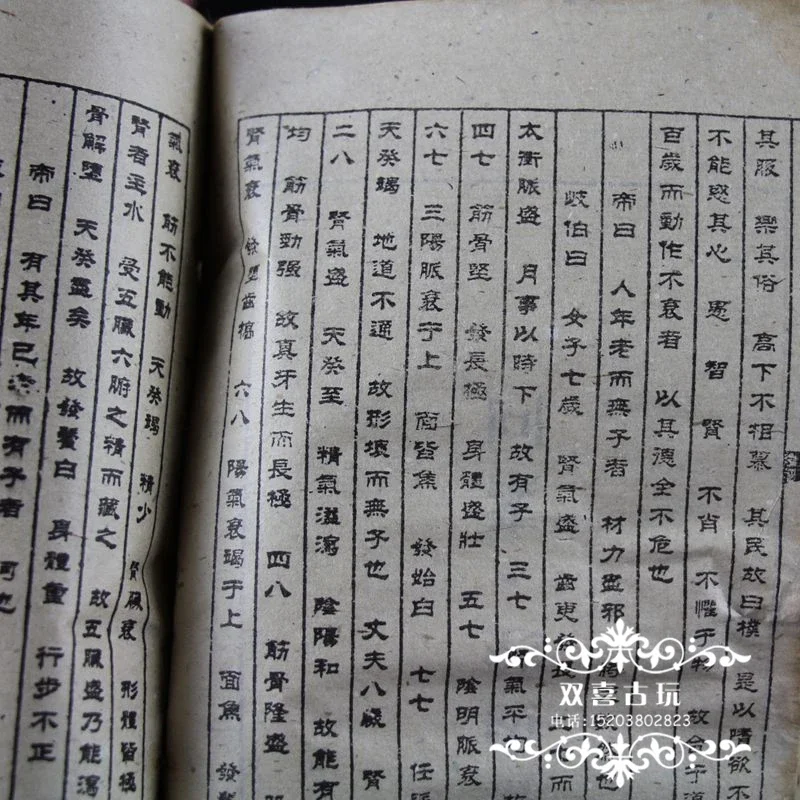 其服 樂其俗 高下不相慕 其民故曰樸 是以嗜欲不
不能惑其心 愚 智 賢 不肖 不懼于物 故合于道
百歲而動作不衰者 以其德全不危也
帝曰 人年老而無子者 材力盡邪 然也
岐伯曰 女子七歲 腎氣盛 齒更 長 而
太衝脈盛 月事以時下 故有子 三七 腎氣平均
四七 筋骨堅 發長極 身體盛壯 五七 陰明脈衰
六七 三陽脈衰于上 面皆焦 發始白 七七 任脈
天癸竭 地道不通 故形壞而無子也 丈夫八歲 腎
二八 腎氣盛 天癸至 精氣溢瀉 陰陽和 故能有
均 筋骨勁强 故真牙生而長極 四八 筋骨隆盛
腎氣衰 發墮齒槁 六八 陽氣衰竭于上 面焦 發鬢
氣衰 筋不能動 天癸竭 精少 腎臟衰 形體皆極
腎者主水 受五臟六腑之精而藏之 故五臟盛乃能瀉
骨解墮 天癸盡矣 故發鬢白 身體重 行步不正
帝曰 有其年已老而有子者 何也
双喜古玩
电话:15203802823